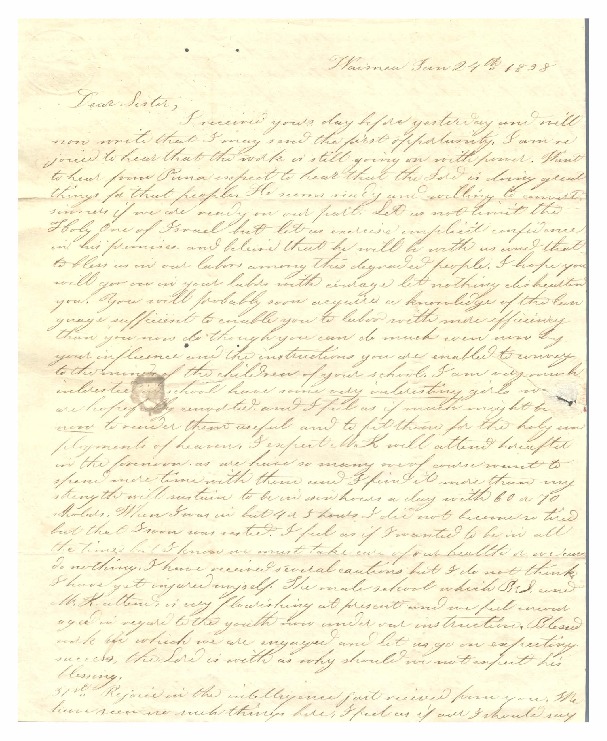 Waimea Jan 24th 1838
Dear Sister,
I received yours day before yesterday and will
now write that I may send the first opportunity. I am re
joiced to hear that the work is still going on with power. Want
to hear from Puna expect to hear that the Lord is doing great
things for that people. He seems ready and willing to convert
sinners if we are ready on our part. Let us not limit the
Holy One of Israel but let us exercise implicit confidence
in his promises and believe that he will be with us and that
to bless us in our labors among this degraded people. I hope you
will go on in your labors with courage let nothing dishearten
you. You will probably soon acquire a knowledge of the lan
guage sufficient to enable you to labor with more efficiency
than you now do though you can do much even now by
your influence and the instructions you are enabled to convey
to the minds of the children of your school. I am very much
interested school have some very interesting girls
we hope converted and I feel as if much might be
now to render them useful and to fit them for the holy em
ployments of heaven. I expect Mr. K will attend hereafter
in the forenoon as we have so many now of course want to
spend more time with them and I find it more than my
strength will sustain to be in six hours a day with 60 or 70
scholars. When I was in but 4 or 5 hours I did not become so tired
but that I soon was rested. I feel as if I wanted to be in all
the time but I know we must take care of our health or we can
do nothing. I have received several cautions but I do not think
I have yet injured myself. The male school which and
Mr. K attends is very flourishing at present and we feel encour
aged in regard to the youth now under our instruction. Blessed
work in which we are engaged and let us go on expecting
success, the Lord is with us why should we not expect his
blessing.
31st. Rejoice in the intelligence just received from you. We
have seen no such things here, I feel as if I should say